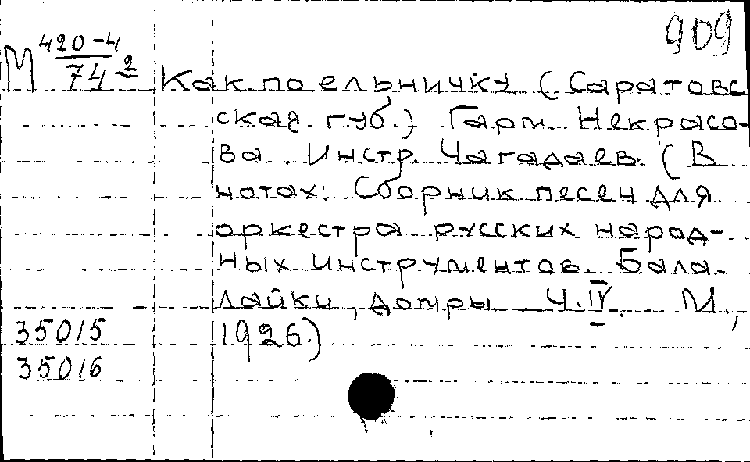 909
М 420-4
74 2
Как по ельничку (Саратовс
ская губ.) Гарм. Некрасо-
ва. Инстр. Чагадаев. (В
нотах: Сборник песен для
оркестра русских народ-
ных инструментов. Бала-
лайки, домры Ч. IV. М,
35015 1926.)
35016